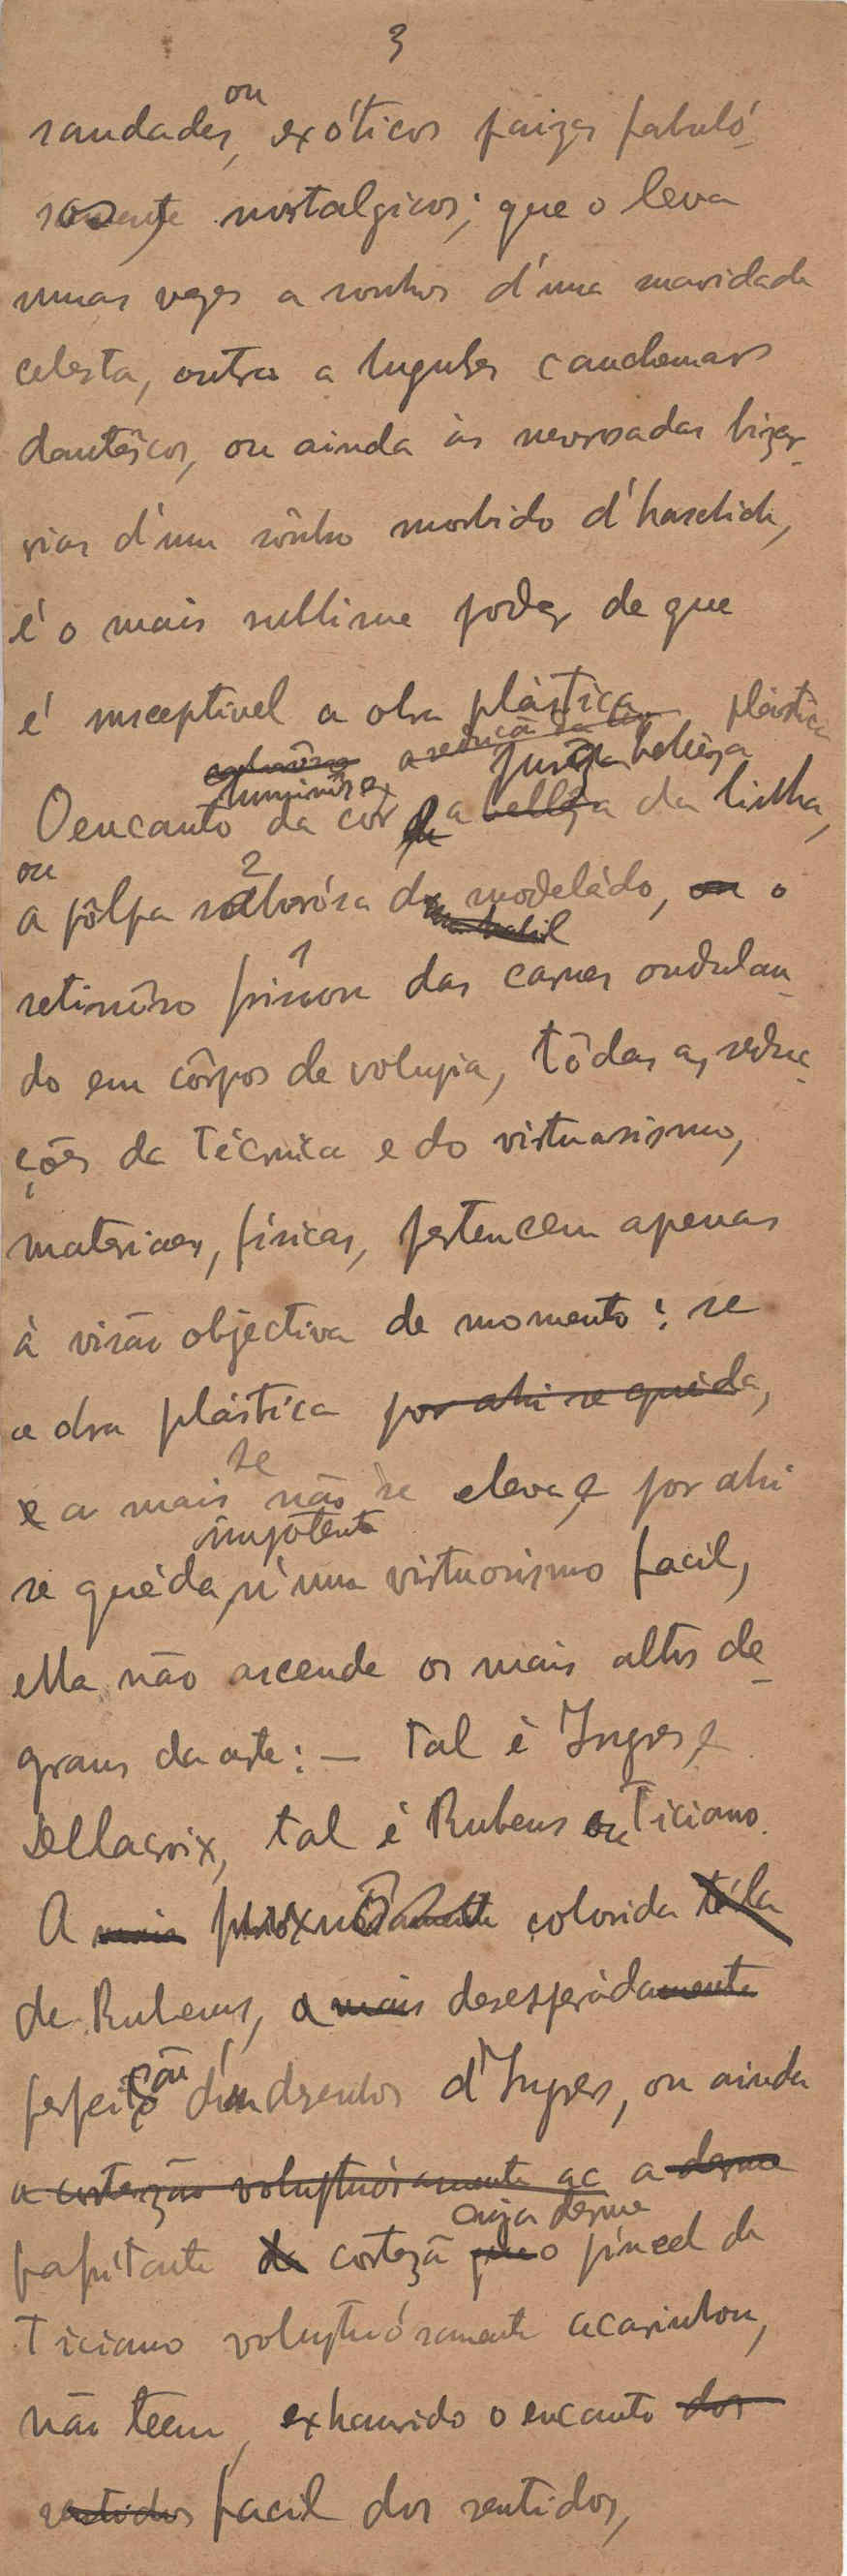 3
ou
saudades, exóticos paizes fabuló-
nostalgicos; que o leva
umas vezes a sonhos d'uma suavidade
celesta, outras a lugubres cauchemars
dantêscos, ou ainda às nevrosadas bizar-
rias d'um sônho morbido d'haschich,
é o mais sublime poder de que
é susceptivel a obra plàstica plàstica
a seducã da
luminôso pureza belêza
O encanto da cor a bellêza da linha,
ou 2
a pôlpa saborósa do modeládo, ou o
1
setinôso frisson das carnes ondulan-
do em côrpos de volupia, tôdas as seduc-
ções da técnica e do virtuosismo,
materiaes, físicas, pertencem apenas
à visão objectiva de momento: se
a obra plástica por ahi se quéda,
se
e a mais não se eleva, e por ahi
impotente
se quéda, n'um virtuosismo facil,
ella não ascende os mais altos de-
graus da arte: — tal é Ingres e
Dellacroix, tal é Rubens ou Ticiano.
A mais colorida téla
de Rubens, a mais desesperádamente
perfeição desenhos d'Ingres, ou ainda
a cortezão voluptuósamente ac a derme
cuja derme
palpitante de cortezã que o pincel de
Ticiano voluptuósamente acarinhou,
não teem, exhaurido o encanto dos
sentidos facil dos sentidos,